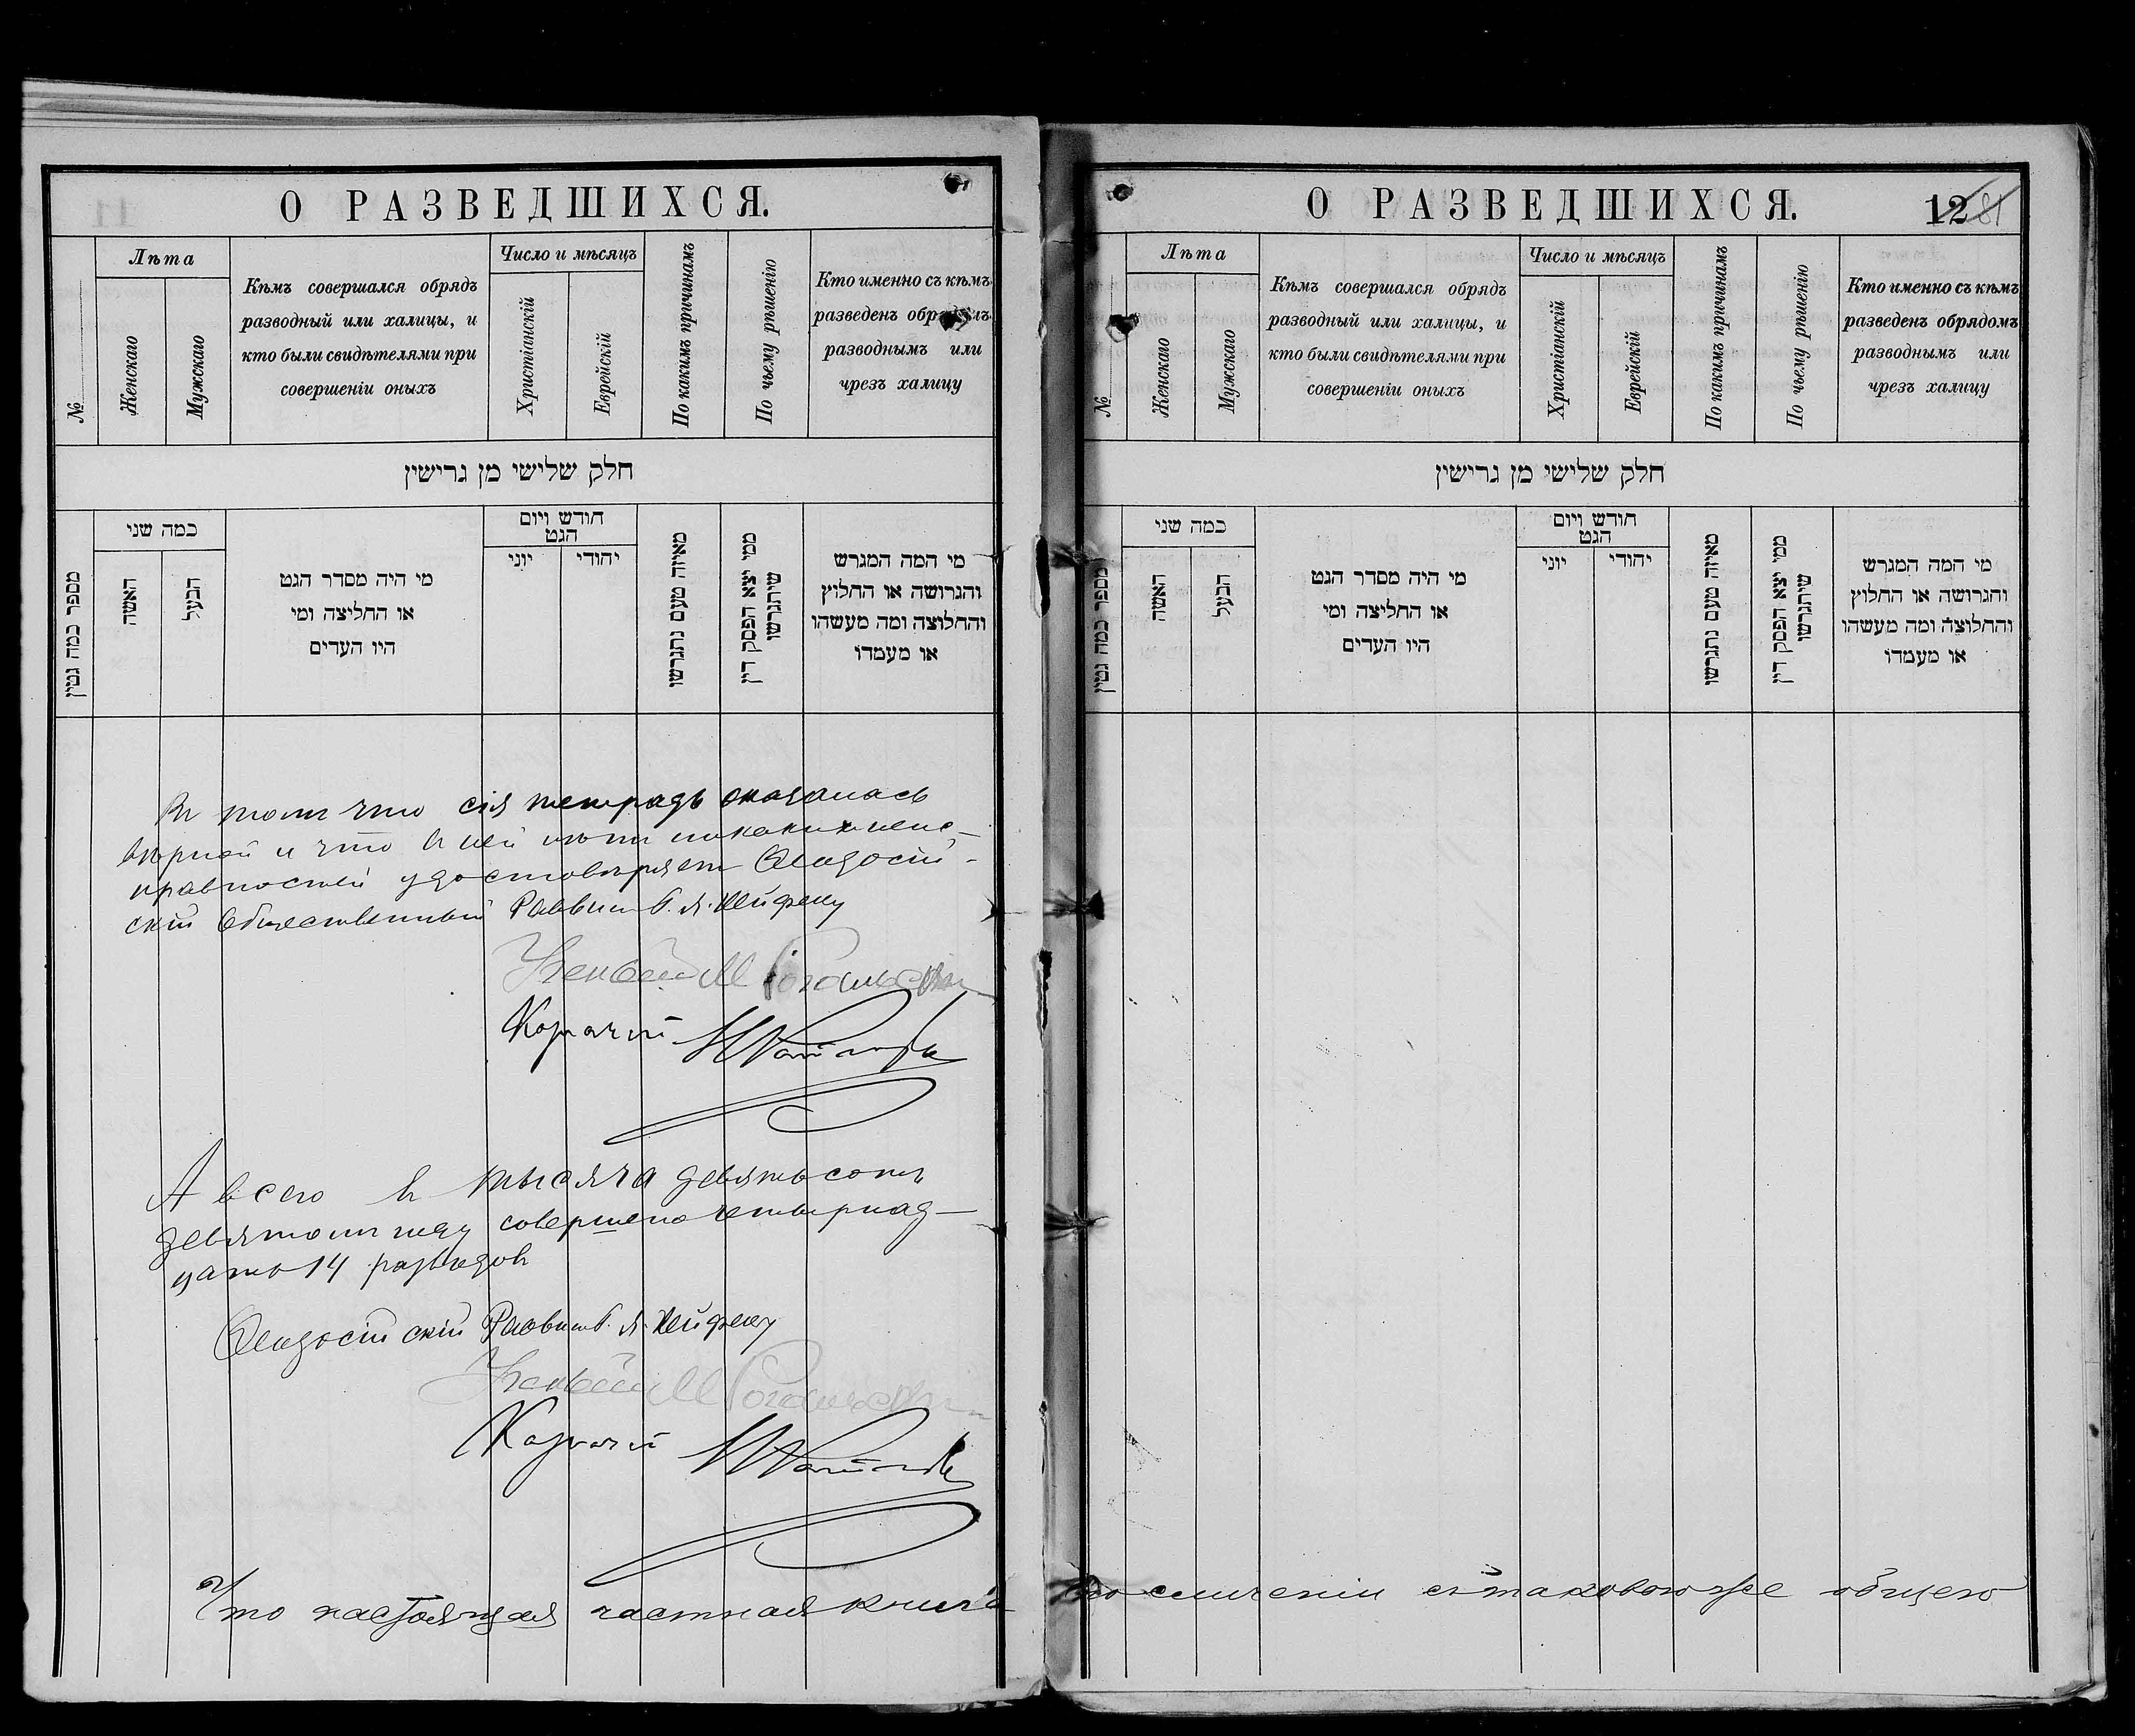 О РАЗВЕДШИХСЯ.
№
Лѣта
Женскаго
Мужскаго
Кѣмъ совершался обрядъ
разводный или халицы, и
кто были свидѣтелями при
совершеніи оныхъ
Число и мѣсяцъ
Христіанскій
Еврейскій
По какимъ причинамъ
По чьему рѣшенію
Кто именно съ кѣмъ
разведенъ обрядомъ
разводнымъ или
чрезъ халицу
חלק שלישי מן גרישין
מספר כמה גטין
כמה שני
האשה
הבעל
מי היה מסדר הגט
או החליצה ומי
היו העדים
חודש ויום
הגט
יוני
יהודי
מאיזה טעם נתגרשו
ממי יצא הפסק דין
שיתגרשו
מי המה המגרש
והגרושה או החלוץ
והחלוצה ומה מעשהו
או מעמדו
Въ томъ что сія тетрадь оказалась
вѣрной и что в ней нѣтъ никакихъ неис-
правностей удостовѣряетъ
скій Общественный Раввинъ
Казначей
А всего въ тысяча девятьсотъ
девятомъ году совершено четырнад-
цать 14 разводовъ
скій Раввинъ
Казначей
Что настоящая частная книга
О РАЗВЕДШИХСЯ.
12 81
№
Лѣта
Женскаго
Мужскаго
Кѣмъ совершался обрядъ
разводный или халицы, и
кто были свидѣтелями при
совершеніи оныхъ
Число и мѣсяцъ
Христіанскій
Еврейскій
По какимъ причинамъ
По чьему рѣшенію
Кто именно съ кѣмъ
разведенъ обрядомъ
разводнымъ или
чрезъ халицу
חלק שלישי מן גרישין
מספר כמה גטין
כמה שני
האשה
הבעל
מי היה מסדר הגט
או החליצה ומי
היו העדים
חודש ויום
הגט
יוני
יהודי
מאיזה טעם נתגרשו
ממי יצא הפסק דין
שיתגרשו
מי המה המגרש
והגרושה או החלוץ
והחלוצה ומה מעשהו
או מעמדו
по сличеніи съ таковою же общею